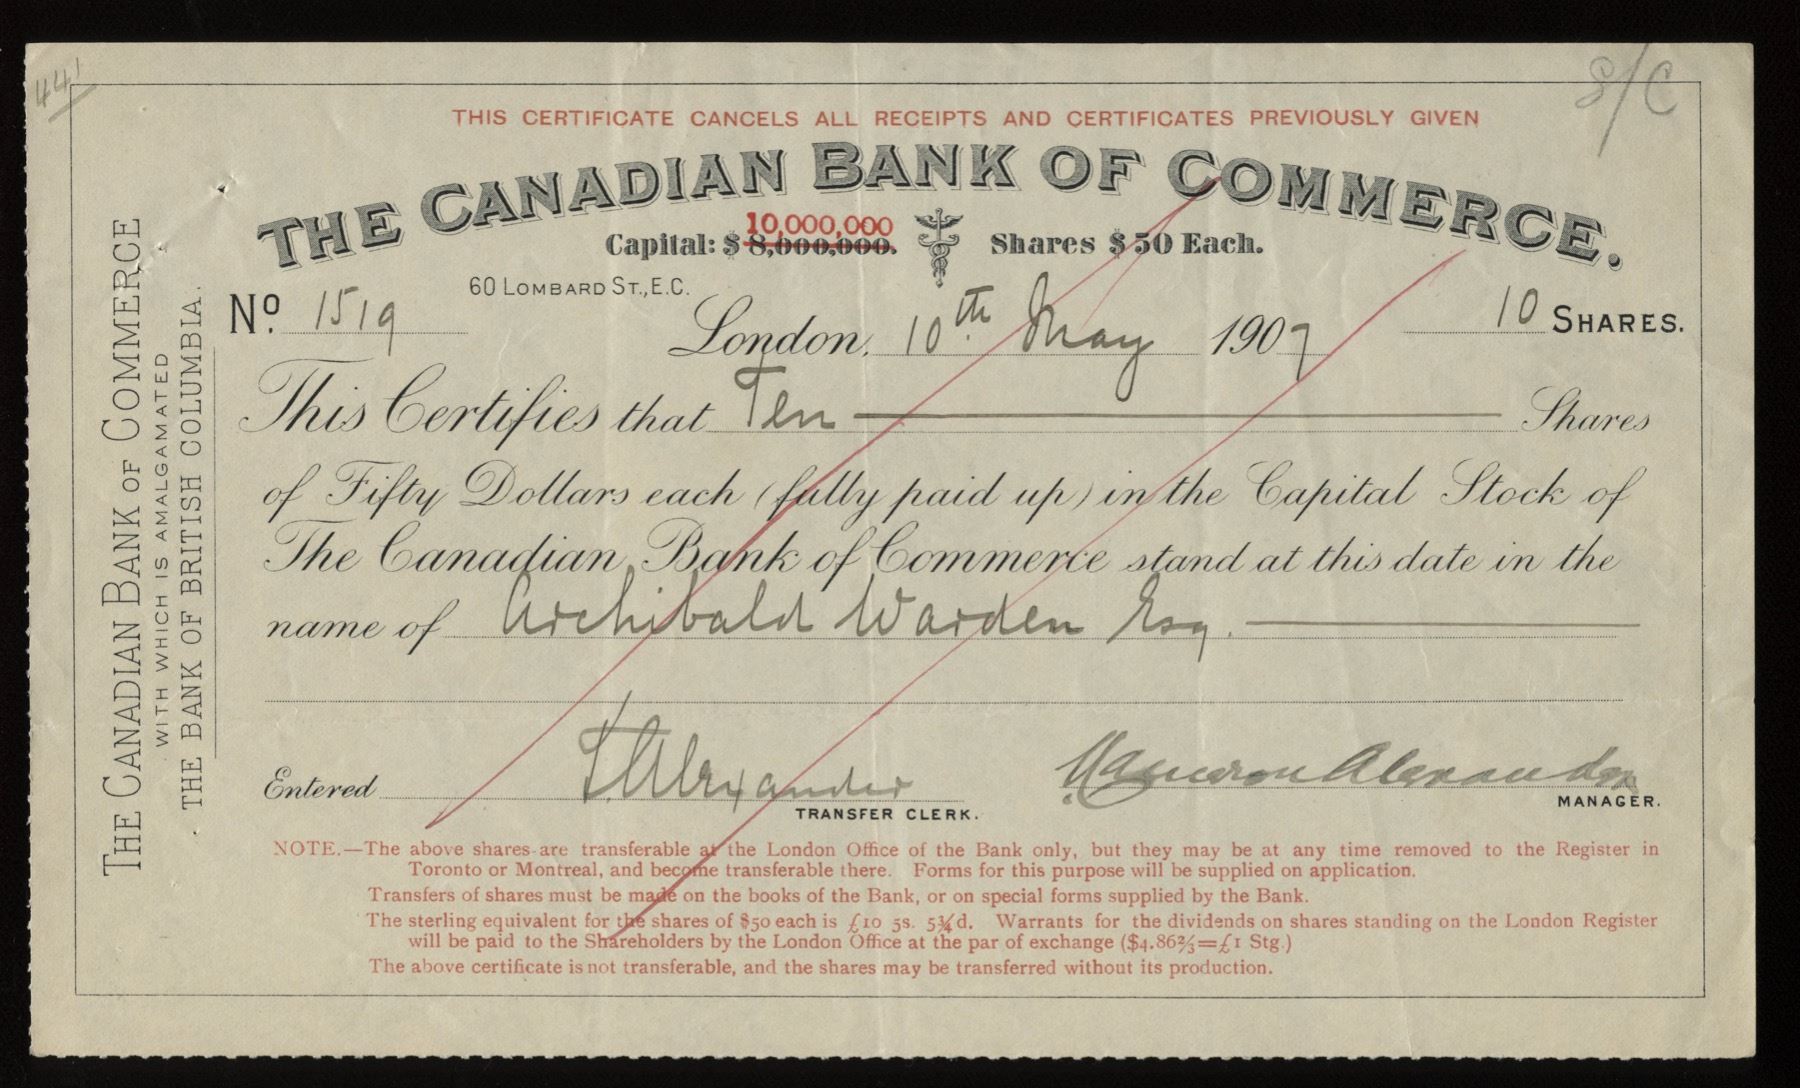 44
S/C
THIS CERTIFICATE CANCELS ALL RECEIPTS AND CERTIFICATES PREVIOUSLY GIVEN
THE CANADIAN BANK OF COMMERCE.
10,000,000
Capital: $ 8,000,000. Shares $50 Each.
60 LOMBARD ST., E.C.
No. 1519 London, 10th May 1907 10 SHARES.
This Certifies that Ten Shares
of Fifty Dollars each (fully paid up) in the Capital Stock of
The Canadian Bank of Commerce stand at this date in the
name of Archibald Warden Esq.
Entered Alexander Cameron Alexander
TRANSFER CLERK. MANAGER.
NOTE.—The above shares are transferable at the London Office of the Bank only, but they may be at any time removed to the Register in
Toronto or Montreal, and become transferable there. Forms for this purpose will be supplied on application.
Transfers of shares must be made on the books of the Bank, or on special forms supplied by the Bank.
The sterling equivalent for the shares of $50 each is £10 5s. 5¾d. Warrants for the dividends on shares standing on the London Register
will be paid to the Shareholders by the London Office at the par of exchange ($4.86⅔=£1 Stg.)
The above certificate is not transferable, and the shares may be transferred without its production.
THE CANADIAN BANK OF COMMERCE
WITH WHICH IS AMALGAMATED
THE BANK OF BRITISH COLUMBIA.